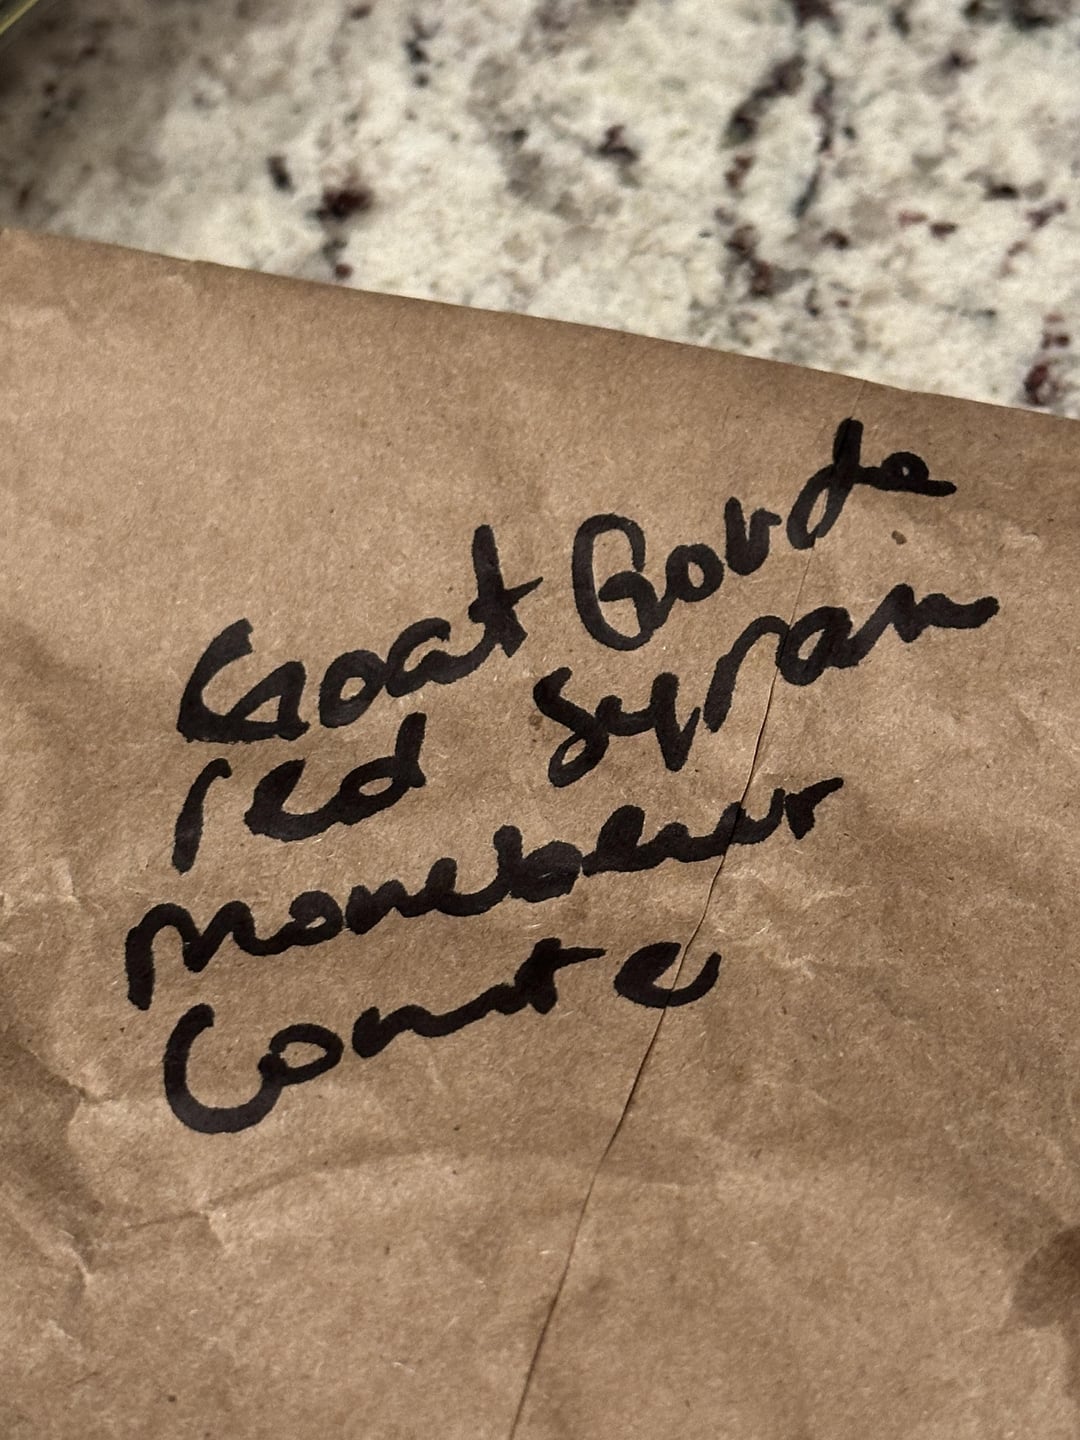 Goat Gouda
red Syrah
monebleur
Comte